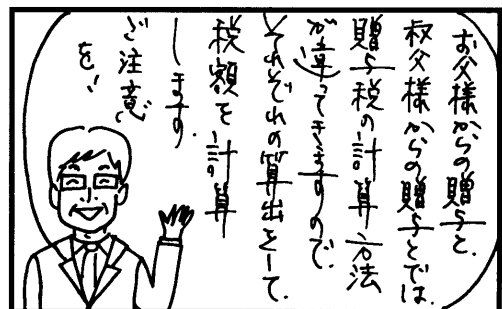 お父様からの贈与と、
叔父様からの贈与とでは、
贈与税の計算方法
が違ってきますので、
それぞれの算出をして、
税額を計算
します。
ご注意
を!